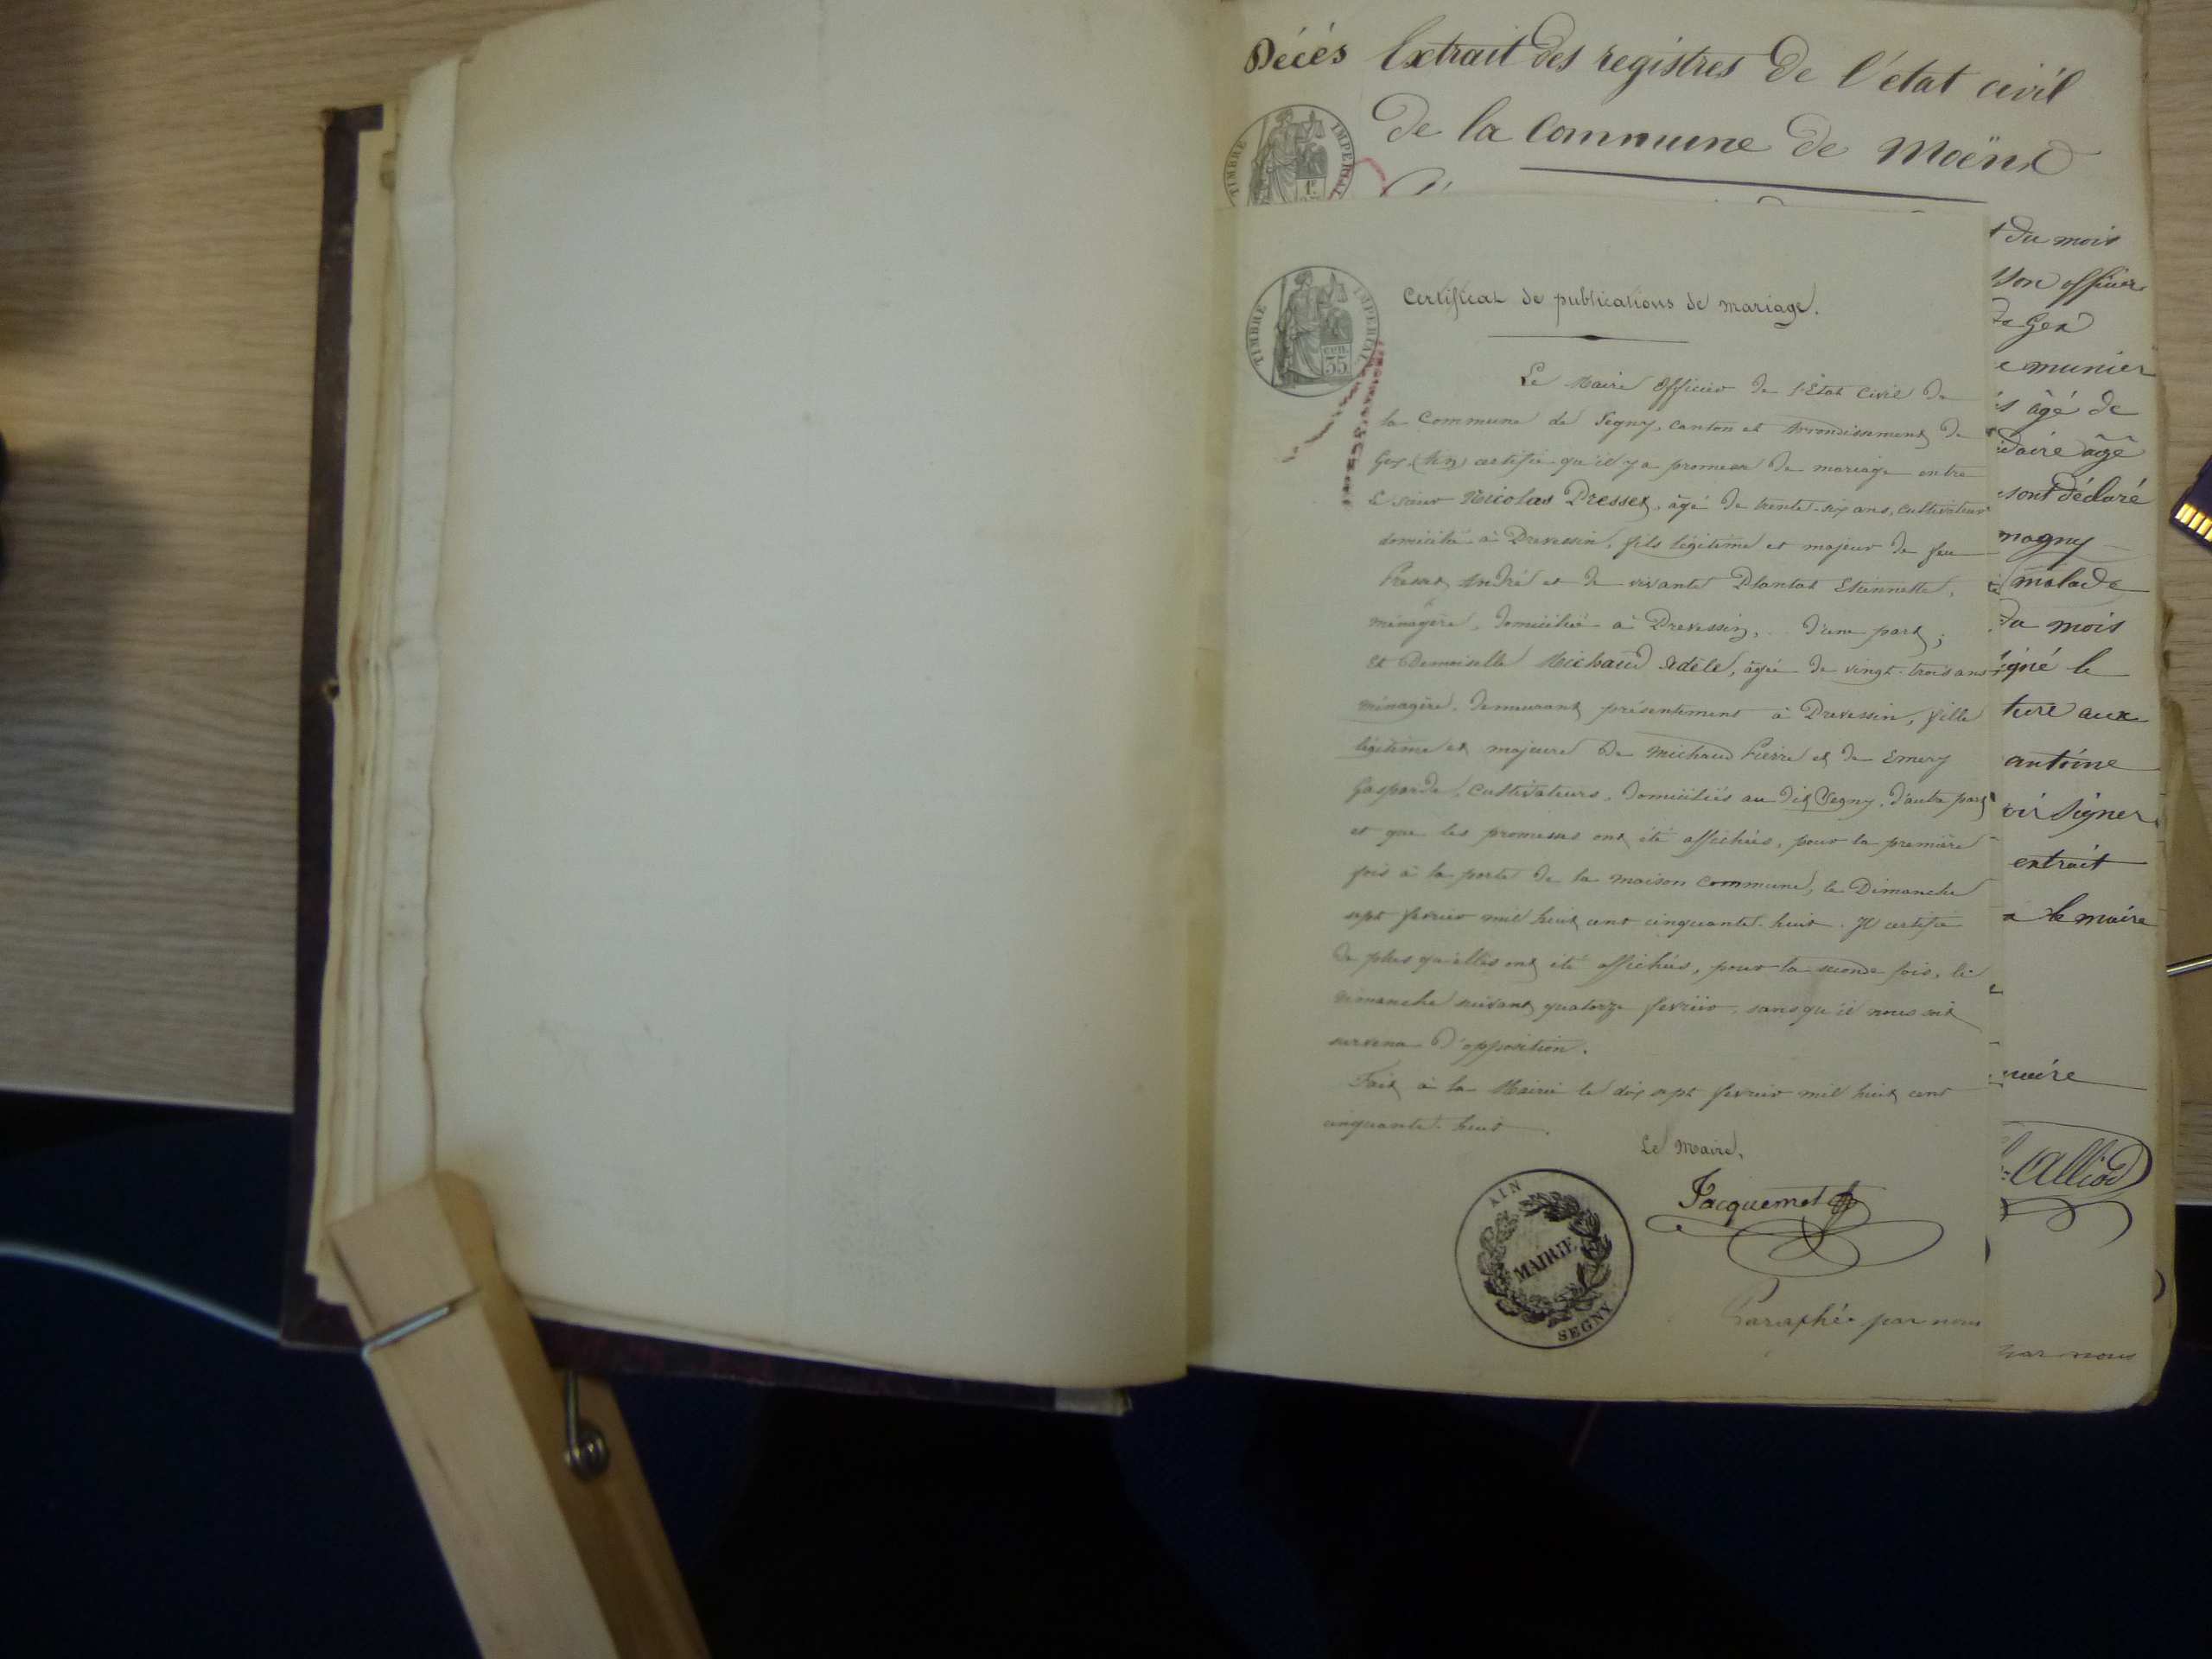 Décès Extrait des registres de l'état civil
de la Commune de Moënx
TIMBRE IMPERIAL
1 F.
TIMBRE IMPERIAL
CENT. 35
Certificat de publications de mariage.
Le Maire Officier de l'Etat Civil de
la Commune de Segny, canton et Arrondissement de
Gex (Ain) certifie qu'il y a promesse de mariage entre
le sieur Nicolas Presset, âgé de trente-six ans, cultivateur
domicilié à Prevessin, fils légitime et majeur de feu
Presset André et de vivante Plantat Etiennette,
ménagère, domiciliée à Prevessin, d'une part;
et Demoiselle Michaud Adèle, âgée de vingt-trois ans
ménagère, demeurant présentement à Prevessin, fille
légitime et majeure de Michaud Pierre et de Emery
Gasparde, cultivateurs, domiciliés au dit Segny, d'autre part
et que les promesses ont été affichées, pour la première
fois à la porte de la maison commune, le Dimanche
sept fevrier mil huit cent cinquante-huit. Il certifie
de plus qu'elles ont été affichées, pour la seconde fois, le
dimanche suivant quatorze fevrier, sans qu'il nous soit
survenu d'opposition.
Fait à la Mairie le dix sept fevrier mil huit cent
cinquante-huit.
Le Maire,
Jacquemet
AIN
MAIRIE
SEGNY
Paraphé par nous
du mois
officier
de Gex
munier
âgé de
âgé
sont déclaré
magny
malade
du mois
le
ture aux
antoine
signer
extrait
le maire
maire
Alliod
par nous